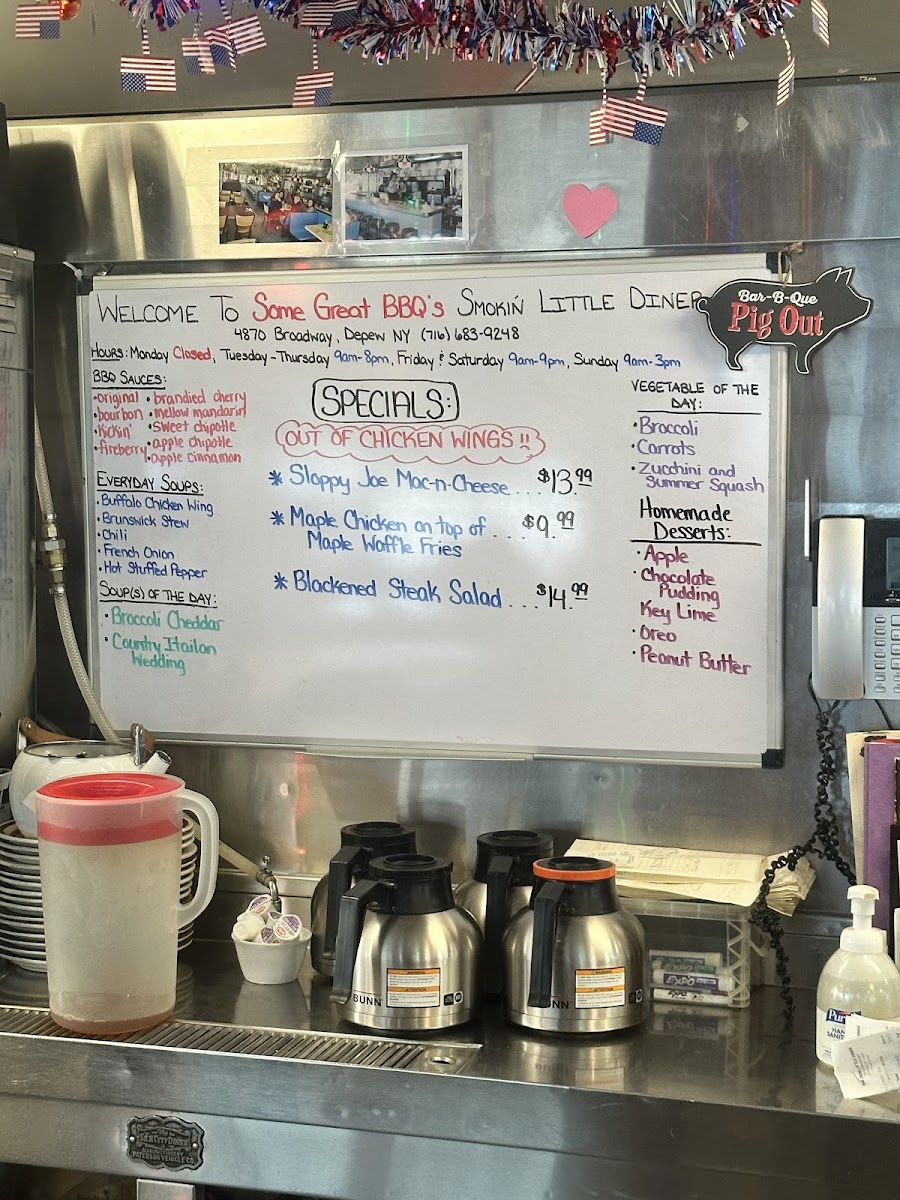 WELCOME TO Some Great BBQ's SMOKIN' LITTLE DINER
4870 Broadway, Depew NY (716) 683-9248
HOURS: Monday Closed, Tuesday-Thursday 9am-8pm, Friday & Saturday 9am-9pm, Sunday 9am-3pm
Bar-B-Que
Pig Out
BBQ SAUCES:
•original • brandied cherry
•bourbon • mellow mandarin
•kickin' • sweet chipotle
•fireberry • apple chipotle
• apple cinnamon
EVERYDAY SOUPS:
• Buffalo Chicken Wing
• Brunswick Stew
• Chili
• French Onion
• Hot Stuffed Pepper
SOUP(S) OF THE DAY:
• Broccoli Cheddar
• Country Itailan
Wedding
SPECIALS:
OUT OF CHICKEN WINGS !!
* Sloppy Joe Mac-n-Cheese ... $13.99
* Maple Chicken on top of ... $9.99
Maple Waffle Fries
* Blackened Steak Salad ... $14.99
VEGETABLE OF THE
DAY:
• Broccoli
• Carrots
• Zucchini and
Summer Squash
Homemade
Desserts:
• Apple
• Chocolate
Pudding
Key Lime
• Oreo
• Peanut Butter
BUNN
WARNING
CAUTION
UNN
WARNING
CAUTION
EXPO
EXPO
Pur
HAN
SANITI
SILK CITY DINER
MANUFACTURED BY
PATERSON VEHICLE CO.